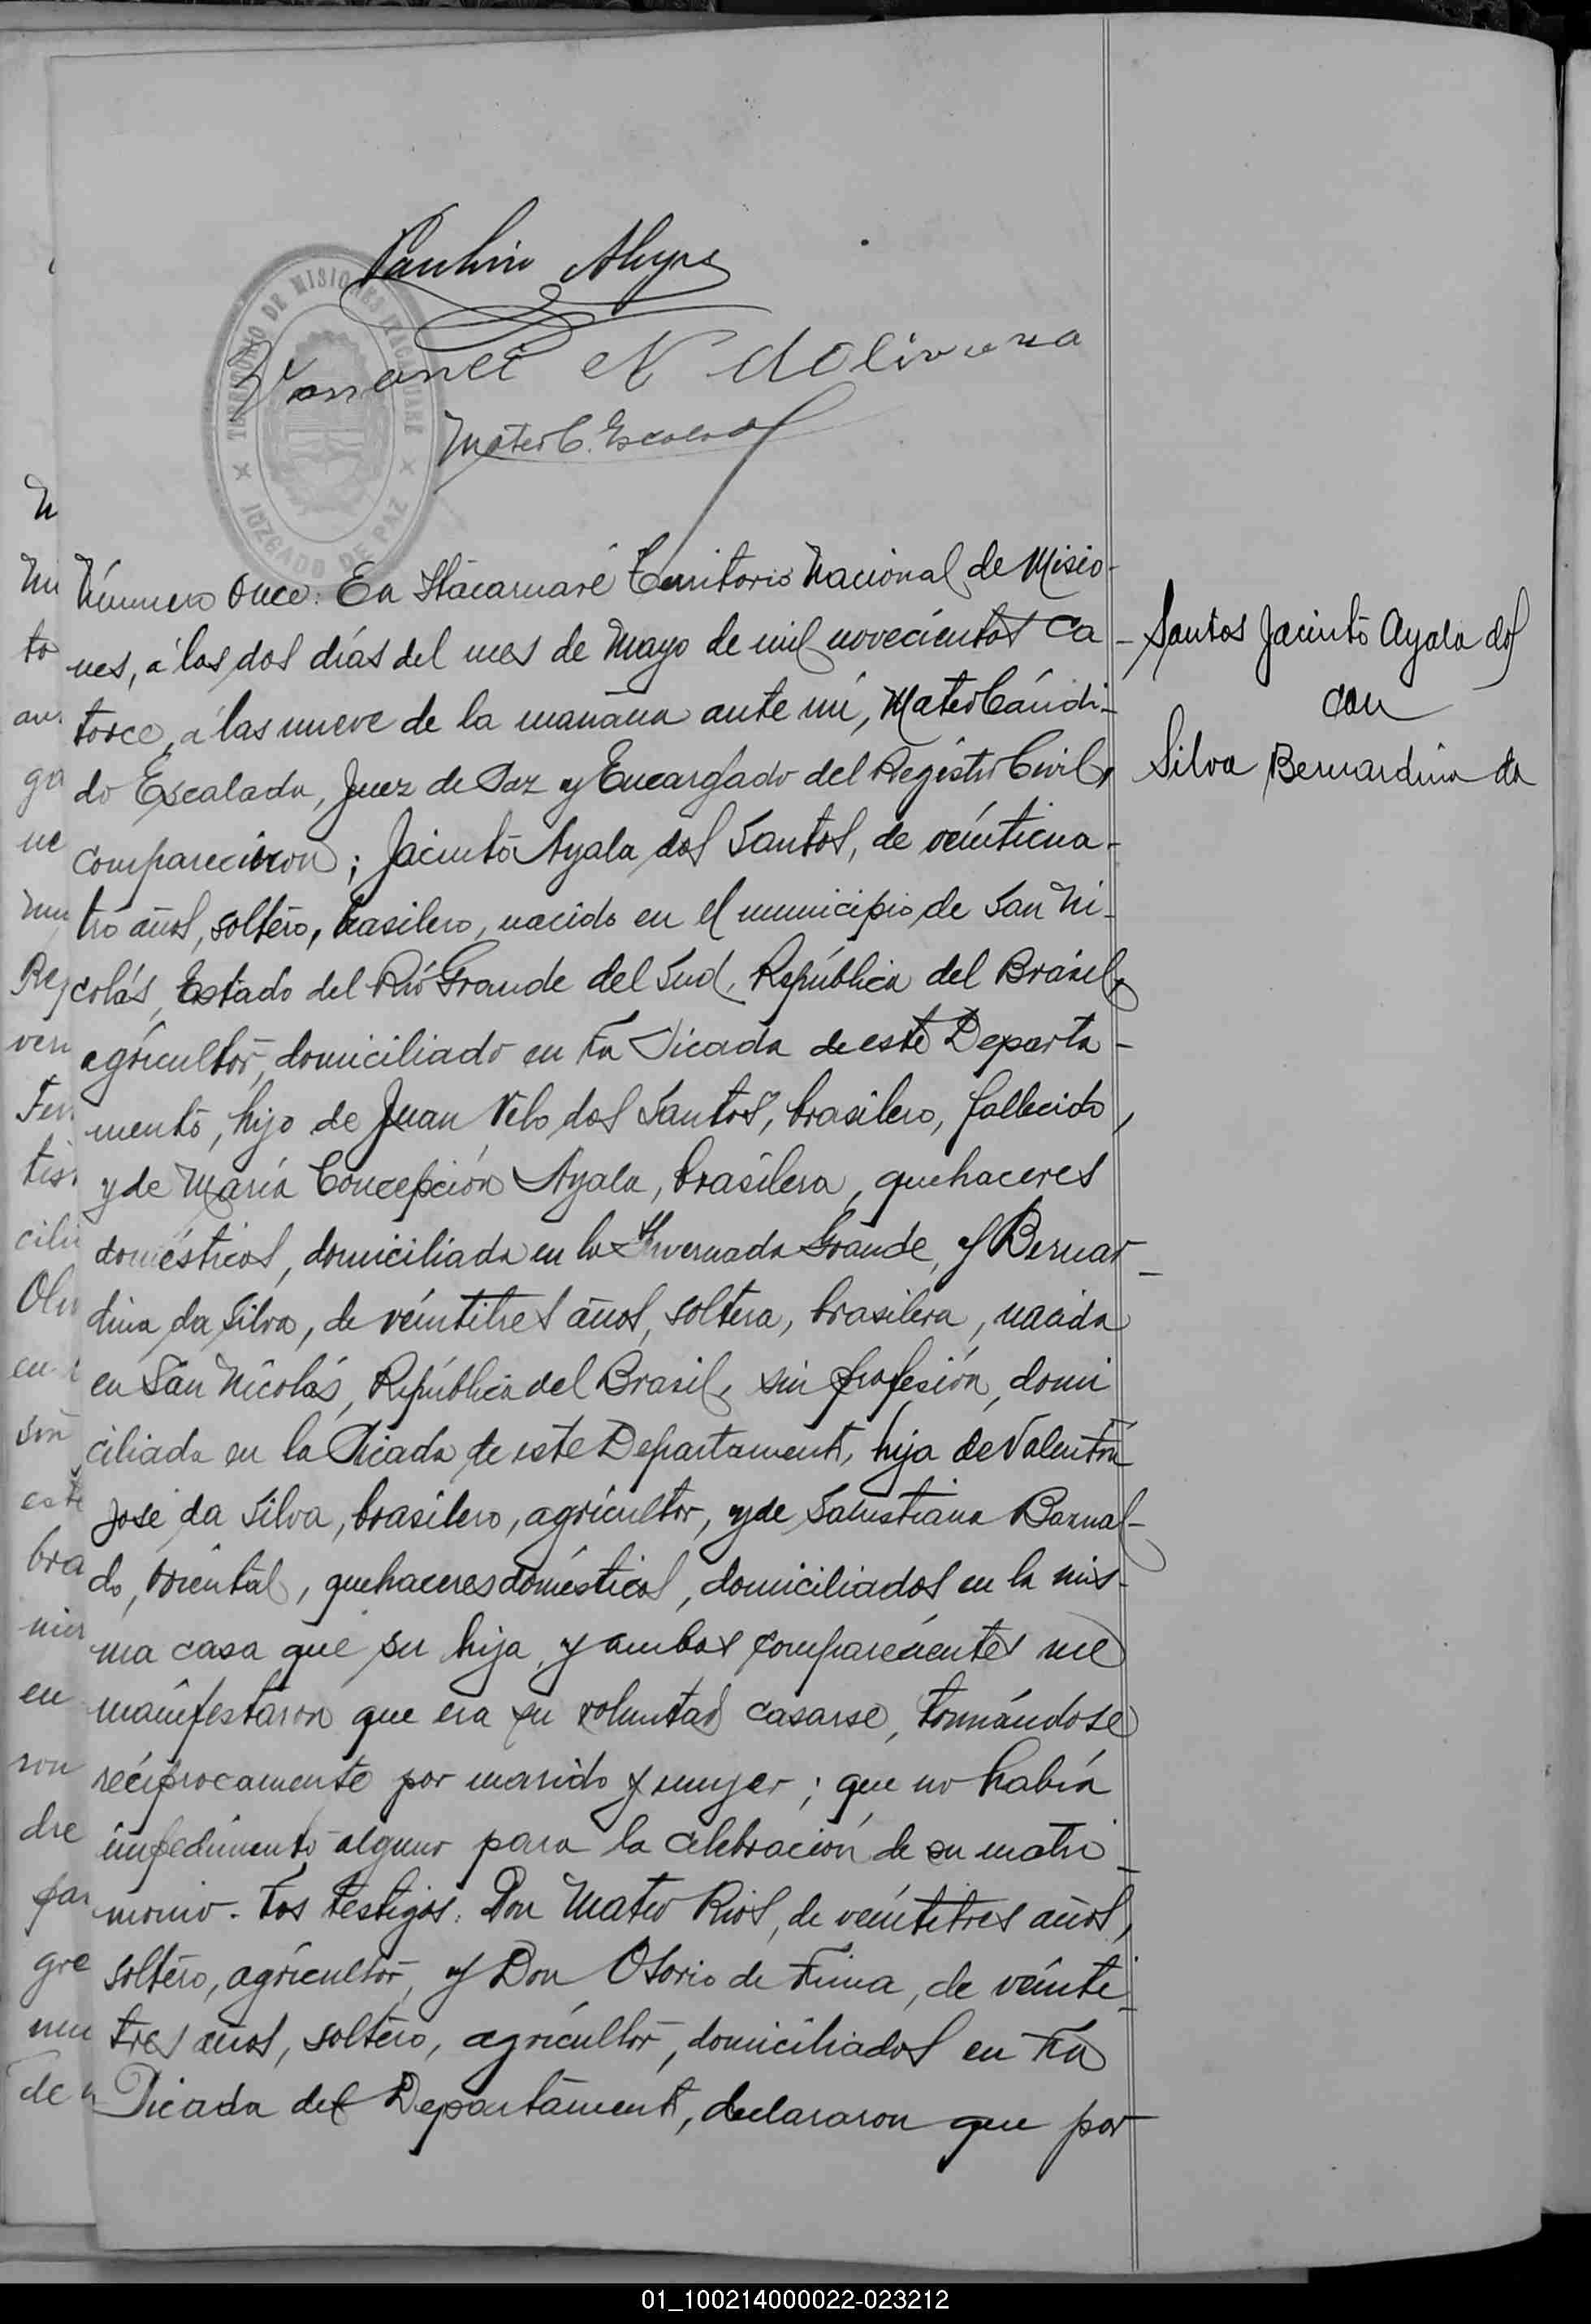 TERRITORIO DE MISIONES ITACARUARE
JUZGADO DE PAZ
Mateo C. Escalada
Número Once: En Itacaruaré Territorio Nacional de Misio-
nes, á los dos días del mes de Mayo de mil novecientos ca-
torce, á las nueve de la mañana ante mí, Mateo Cándi-
do Escalada, Juez de Paz y Encargado del Registro Civil,
comparecieron; Jacinto Ayala dos Santos, de veinticua-
tro años, soltero, brasilero, nacido en el municipio de San Ni-
colás, Estado del Río Grande del Sud, República del Brasil,
agricultor, domiciliado en La Picada de este Departa-
mento, hijo de Juan Velo dos Santos, brasilero, fallecido,
y de María Concepción Ayala, brasilera, quehaceres
domésticos, domiciliada en la Invernada Grande, y Bernar-
dina da Silva, de veintitres años, soltera, brasilera, nacida
en San Nicolás, República del Brasil, sin profesión, domi
ciliada en la Picada de este Departamento, hija de Valentín
José da Silva, brasilero, agricultor, y de Salustiana Barnal-
do, oriental, quehaceres domésticos, domiciliados en la mis-
ma casa que su hija, y ambos comparecientes me
manifestaron que era su voluntad casarse, tomándose
recíprocamente por marido y mujer; que no había
impedimento alguno para la celebración de su matri-
monio. Los testigos: Don Mateo Rios, de veintitres años,
soltero, agricultor, y Don Osorio de Lima, de veinte
tres años, soltero, agricultor, domiciliados en La
Picada del Departamento, declararon que por
Santos Jacinto Ayala dos
con
Silva Bernardina da
01_100214000022-023212